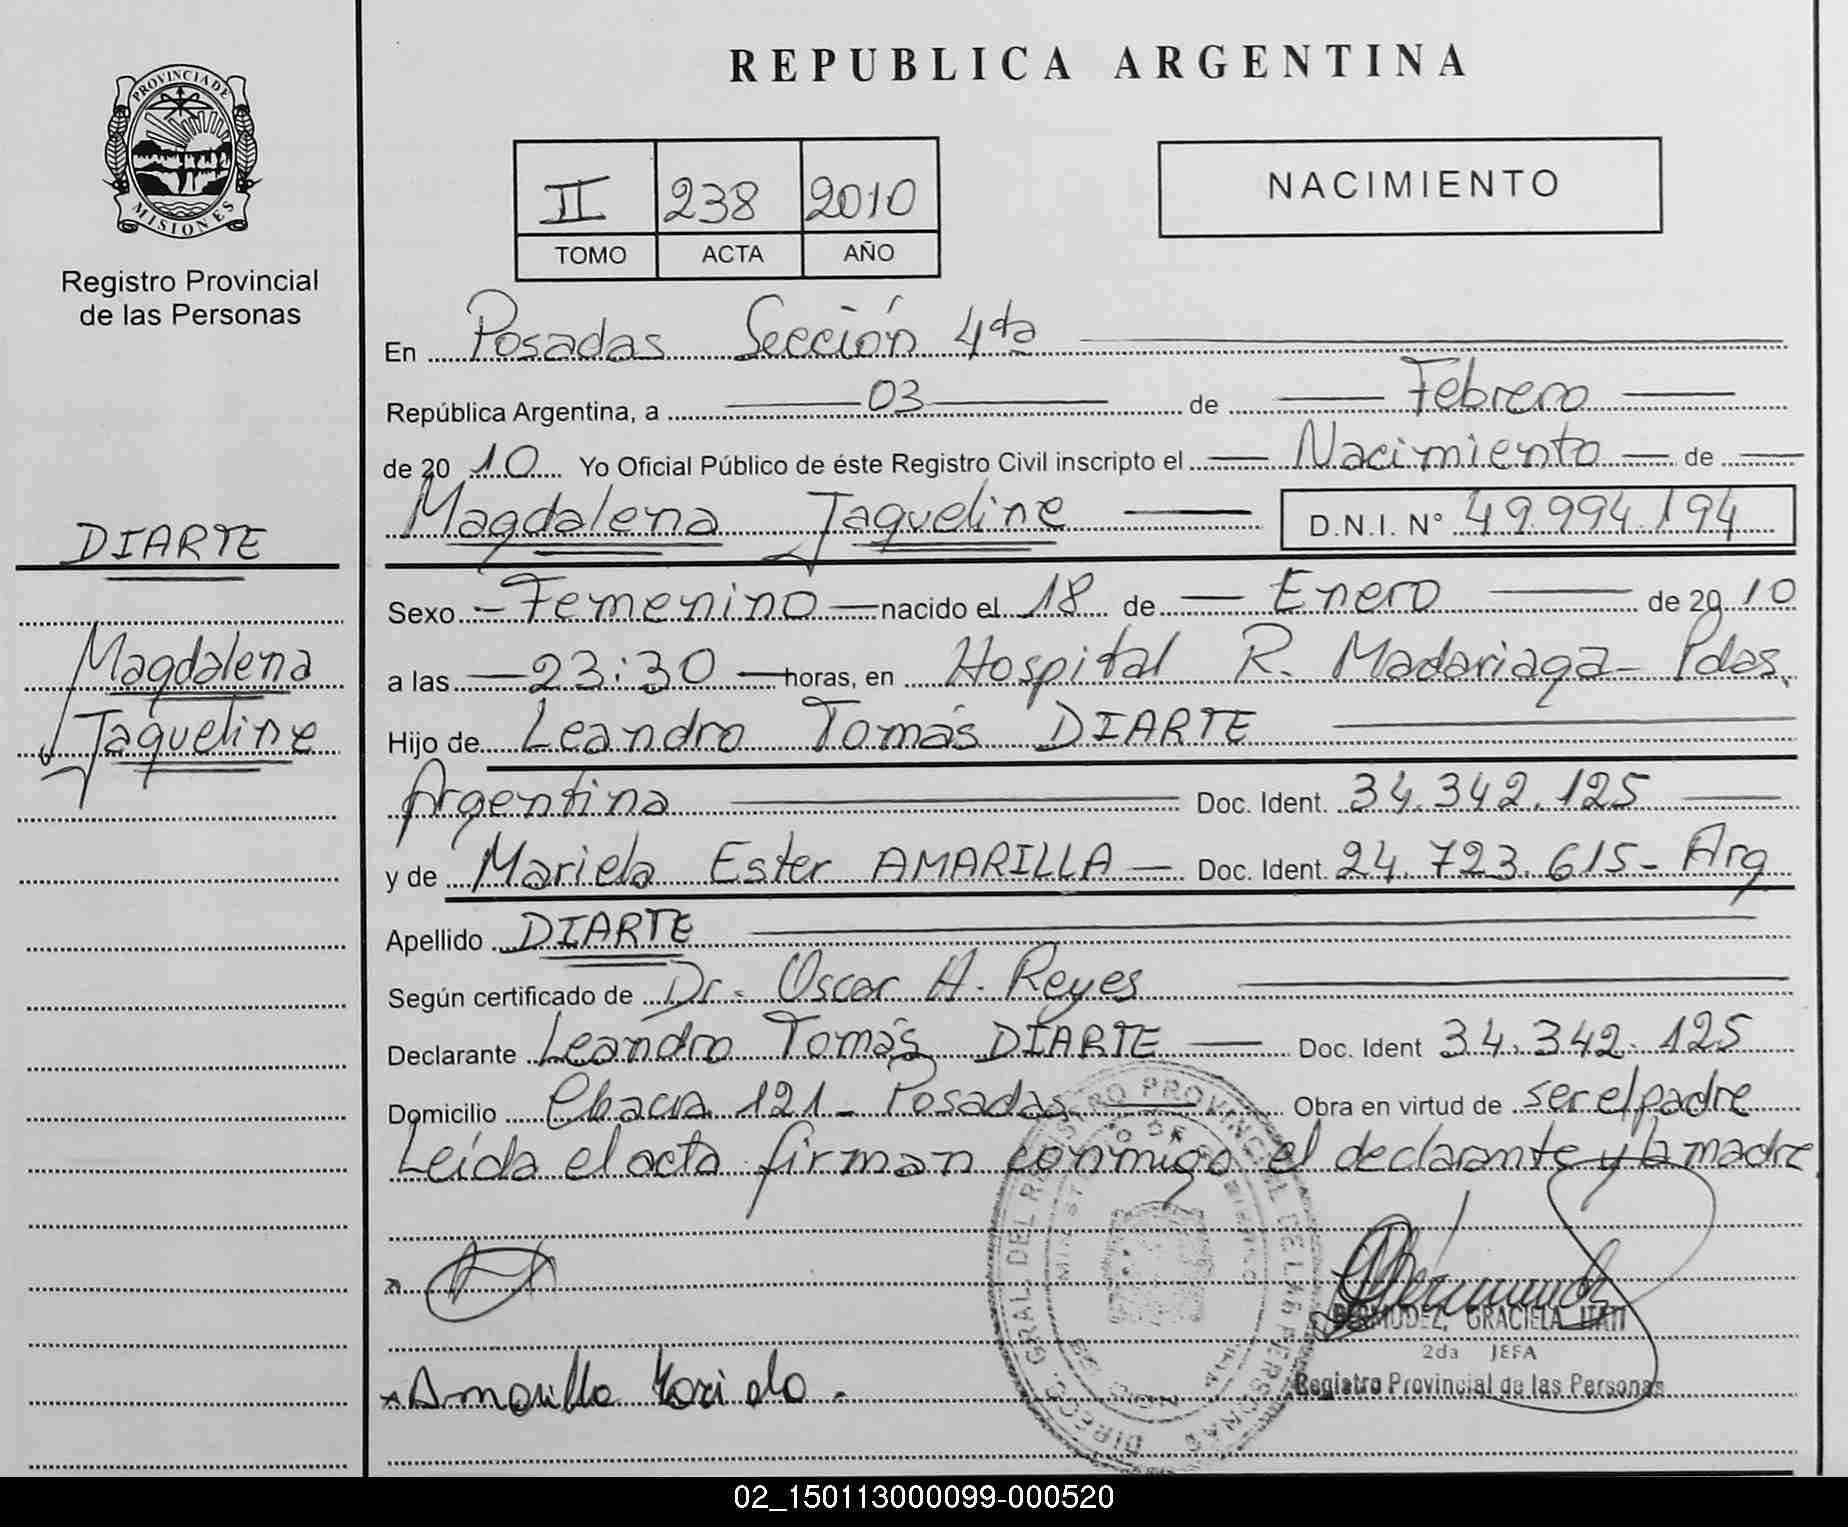 PROVINCIA DE
MISIONES
Registro Provincial
de las Personas
DIARTE
Magdalena
Jaqueline
REPUBLICA ARGENTINA
II 238 2010
TOMO ACTA AÑO
NACIMIENTO
En Posadas Sección 4ta
República Argentina, a 03 de Febrero
de 2010 Yo Oficial Público de éste Registro Civil inscripto el Nacimiento de
Magdalena Jaqueline D.N.I. N° 49.994.194
Sexo Femenino nacido el 18 de Enero de 2010
a las 23:30 horas, en Hospital R. Madariaga - Pdas.
Hijo de Leandro Tomás DIARTE
Argentina Doc. Ident. 34.342.125
y de Mariela Ester AMARILLA Doc. Ident. 24.723.615 - Arg
Apellido DIARTE
Según certificado de Dr. Oscar A. Reyes
Declarante Leandro Tomás DIARTE Doc. Ident 34.342.125
Domicilio 121 - Posadas Obra en virtud de ser el padre
Leída el acta firman conmigo el declarante y la madre
BERMUDEZ, GRACIELA ITATI
2da JEFA
Registro Provincial de las Personas
Amarilla Mariela.
02_150113000099-000520